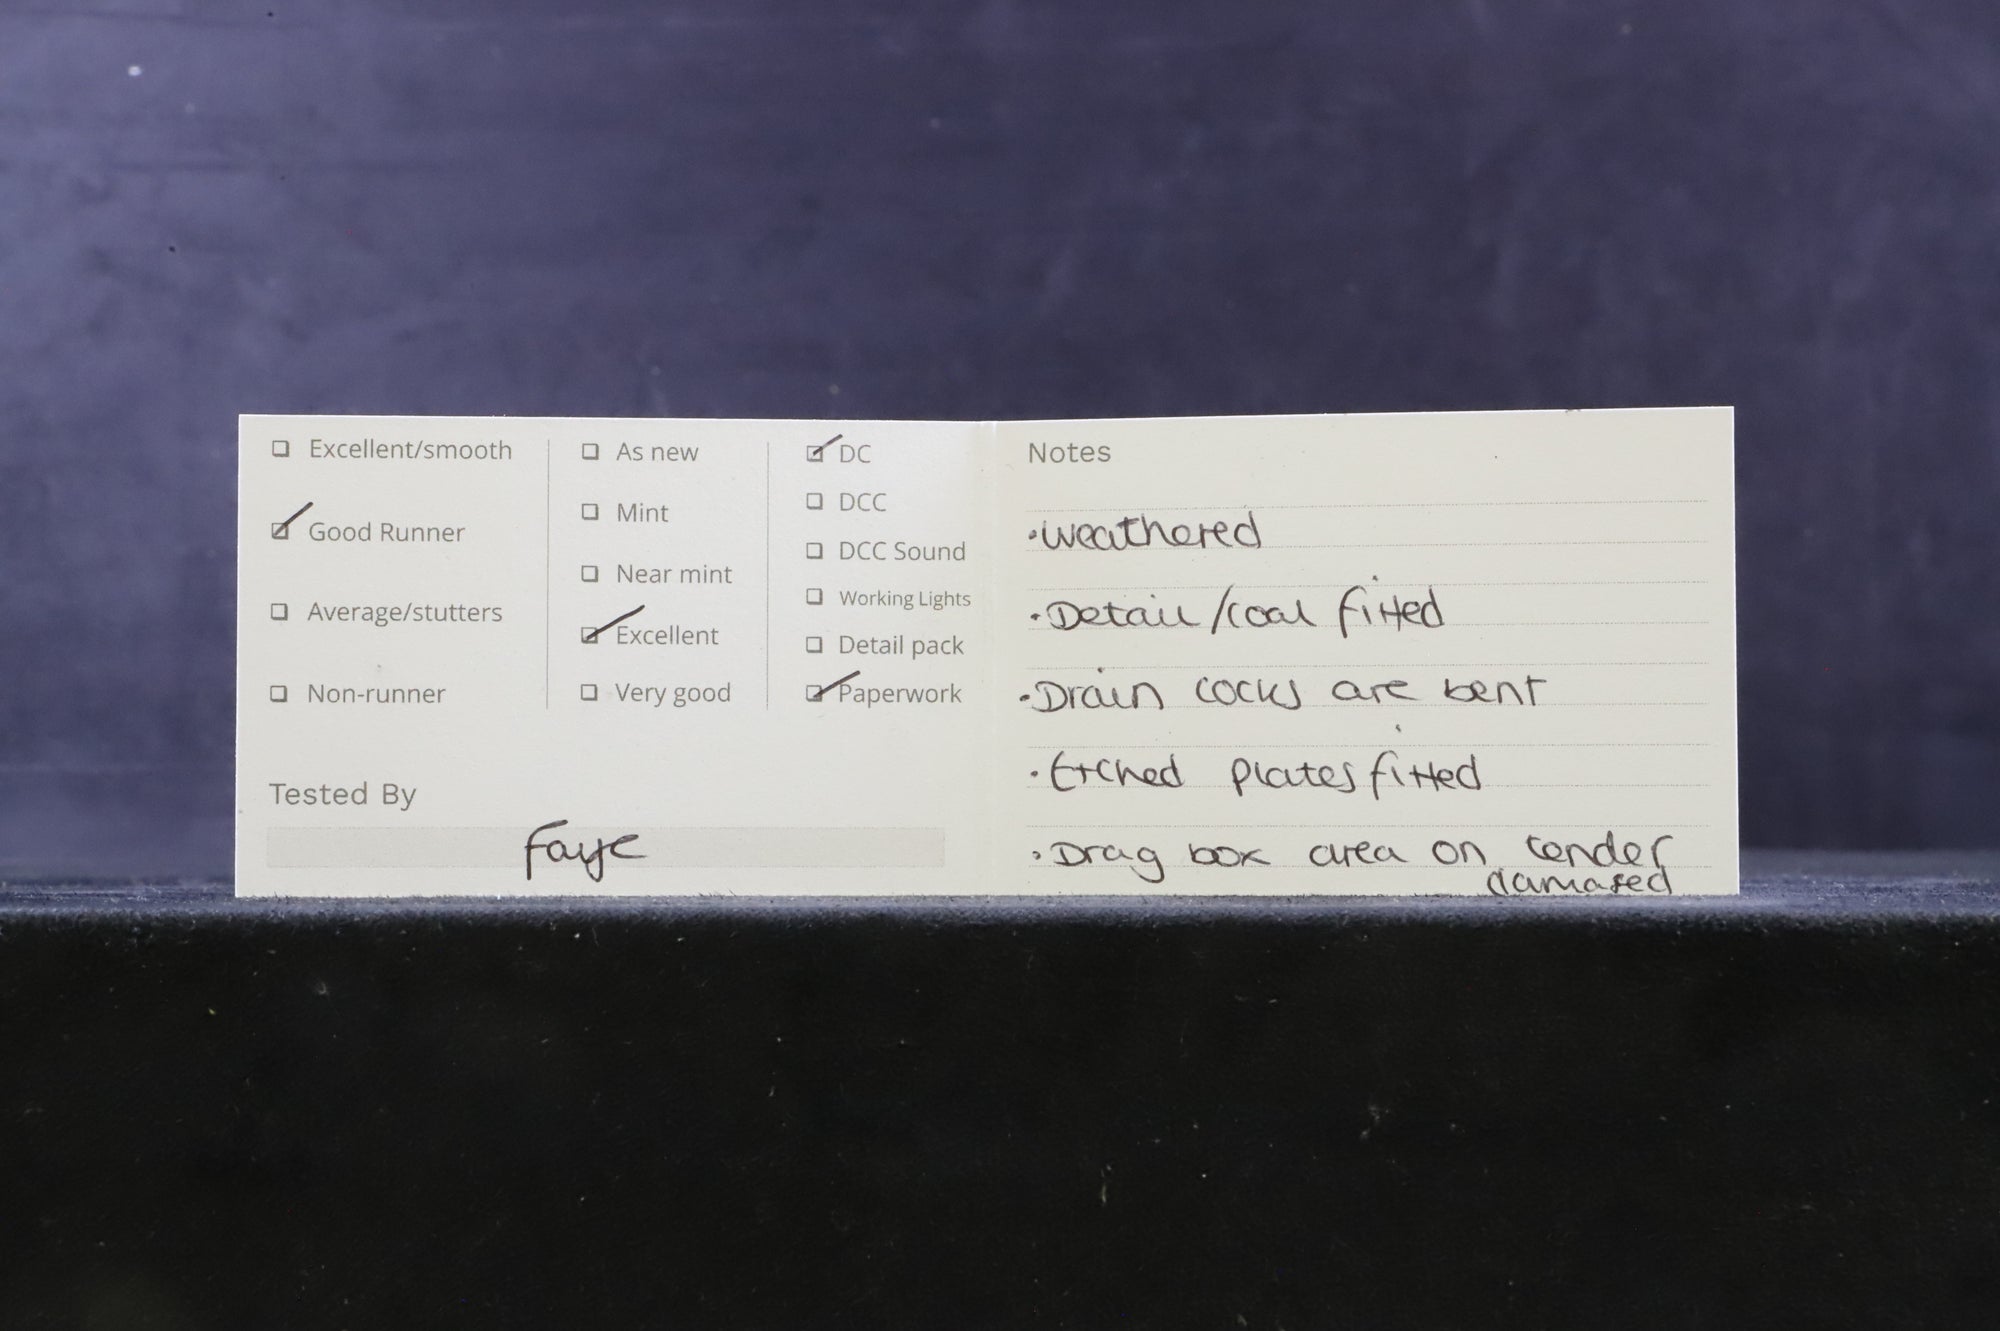 Excellent/smooth
Good Runner
Average/stutters
Non-runner
As new
Mint
Near mint
Excellent
Very good
DC
DCC
DCC Sound
Working Lights
Detail pack
Paperwork
Tested By
Faye
Notes
• Weathered
• Detail/coal fitted
• Drain cocks are bent
• Etched plates fitted
• Drag box area on tender
damaged